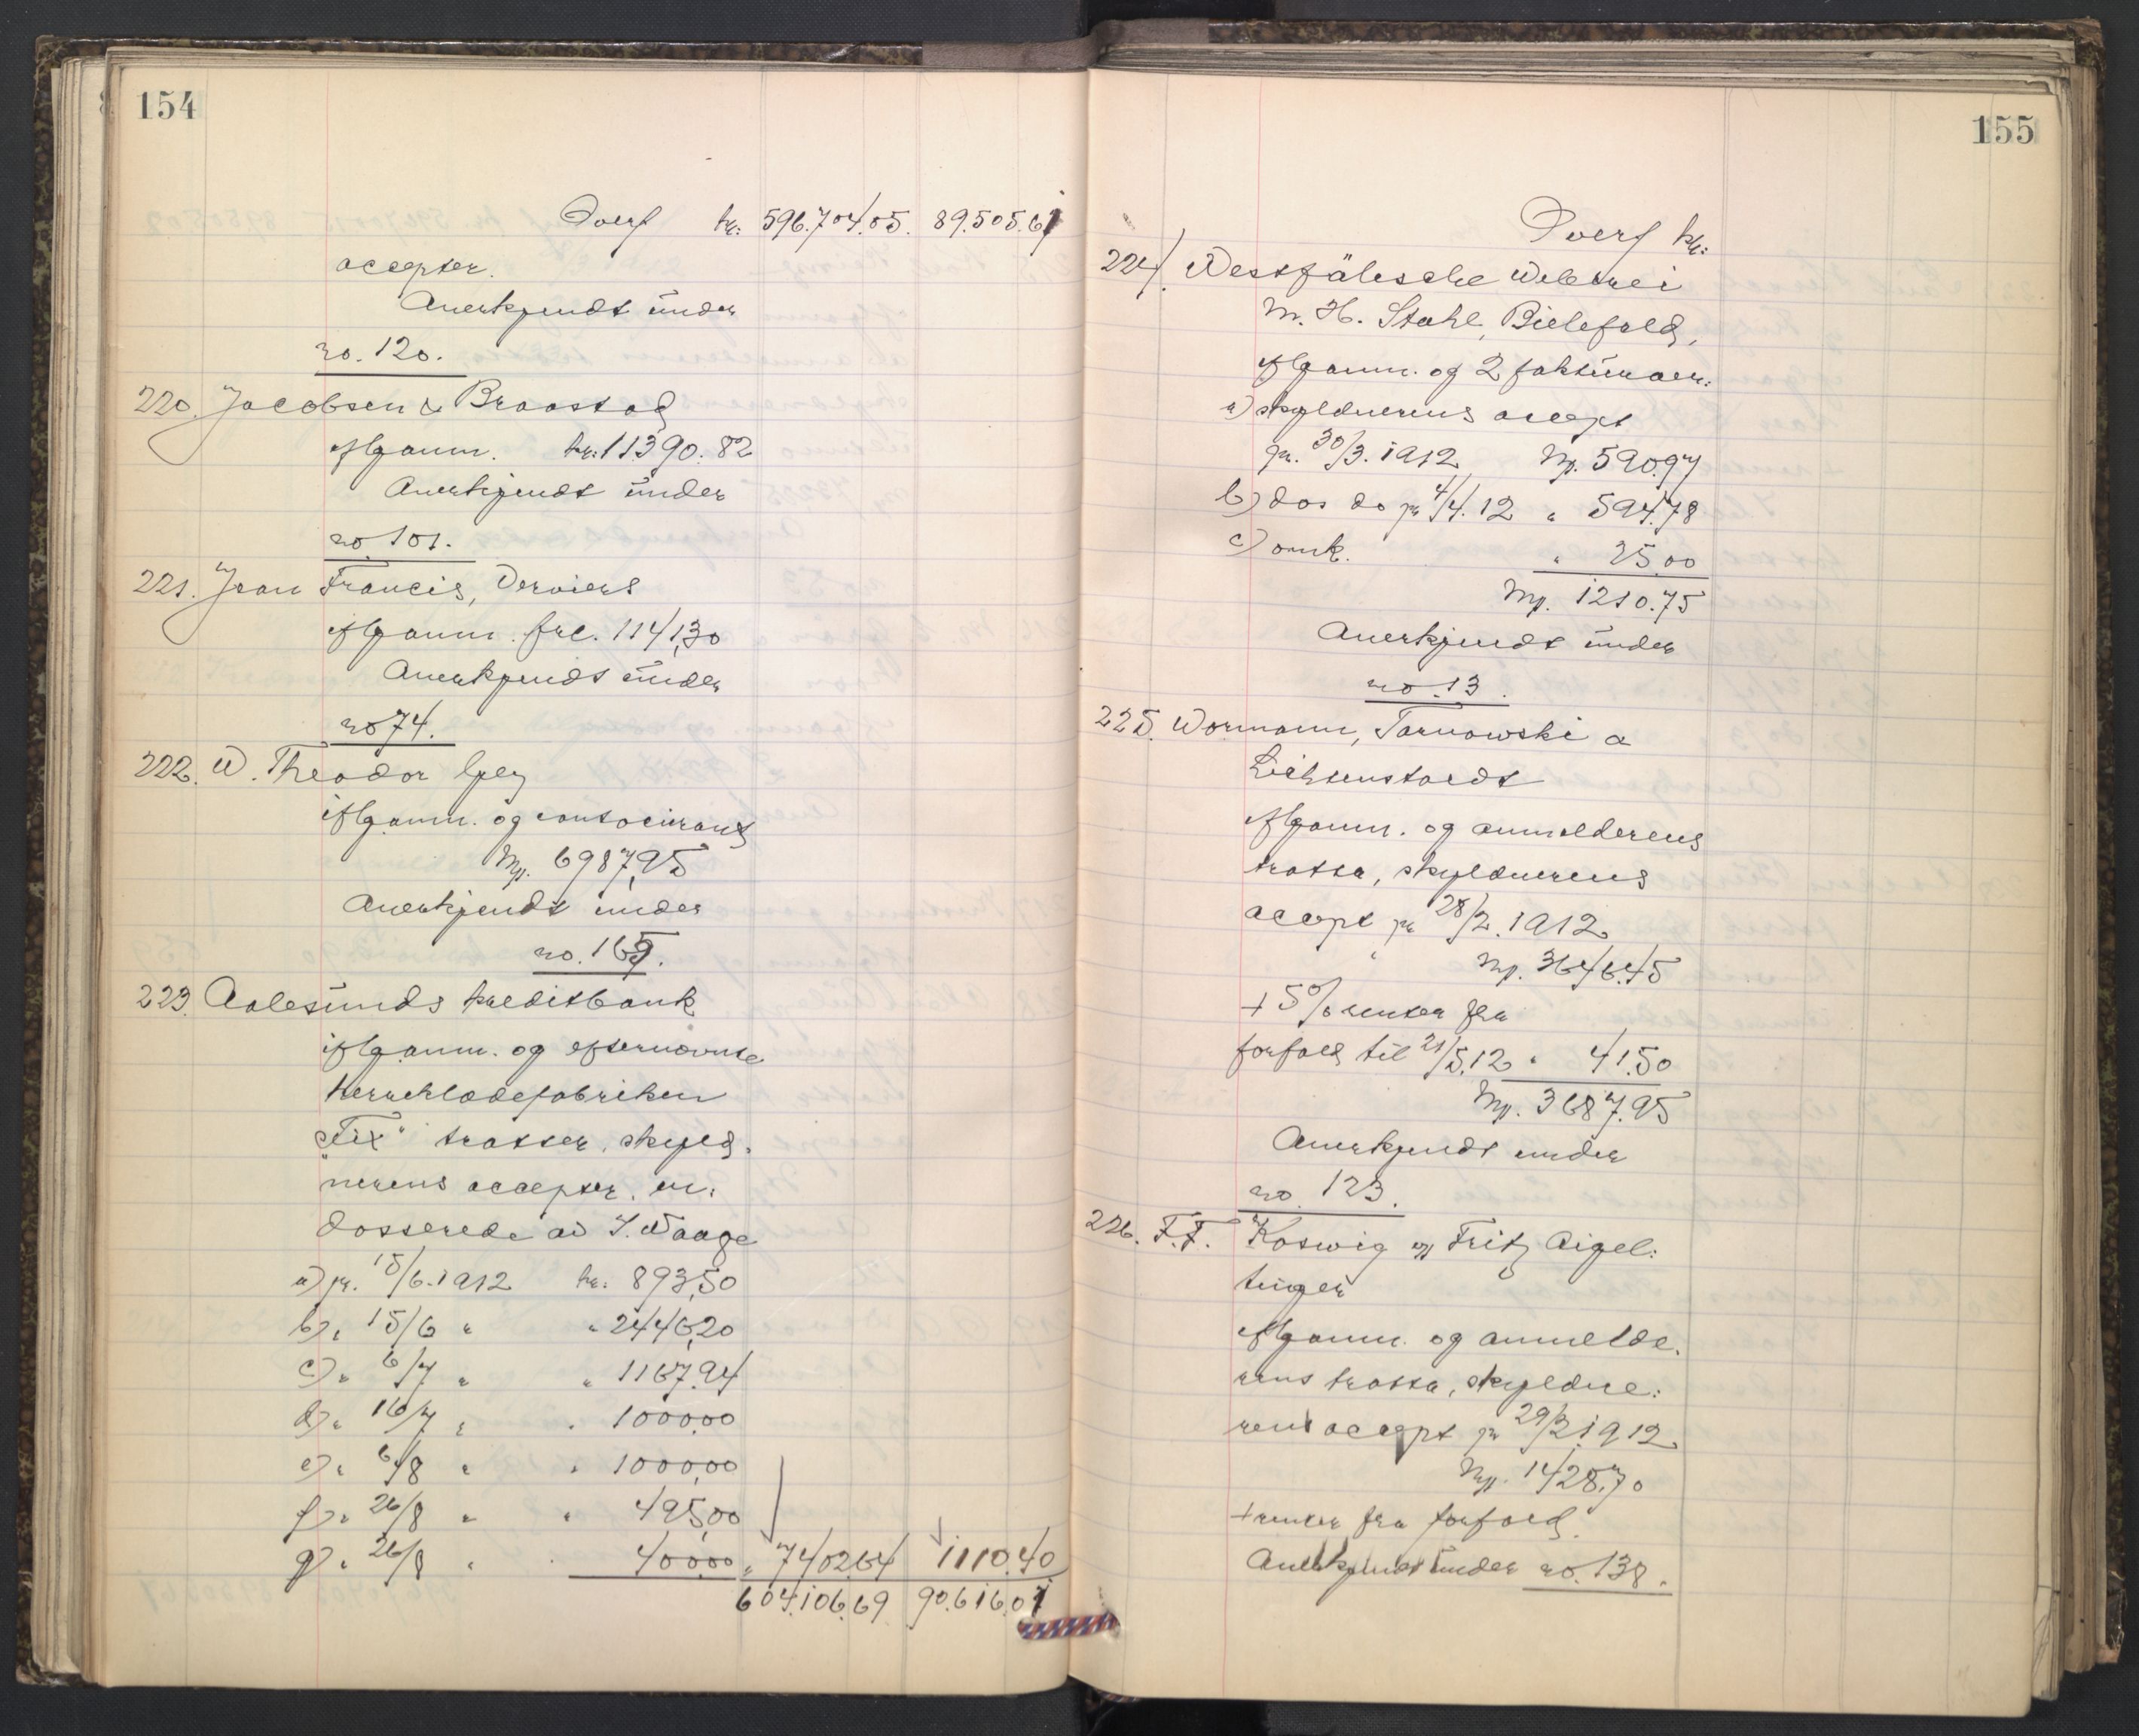 154
Overf kr. 596.704.05. 89.505.61
accepter.
Anerkjendt under
no. 120.
220. Jacobsen & Braastad
iflg anm. kr. 11390.82
Anerkjendt under
no. 101.
221. Jean Francis, Verviers
iflg anm. frc. 114,30
Anerkjendt under
no 74.
222. W. Theodor
iflg anm. og contocurant
Mp. 6987,95
Anerkjendt under
no. 165.
223. Aalesunds kreditbank
iflg anm. og efternævnte
herreklædefabriken
"Fix" tratter, skyld-
nerens accepter, en-
dosserede av I. Waage
a) pr. 15/6.1912 kr. 893,50
b) " 15/6 " " 2446,20
c) " 6/7 " " 1167.94
d) " 16/7 " " 1000,00
e) " 6/8 " " 1000,00
f) " 26/8 " " 495,00
g) " 26/8 " " 400,00 " 7402.64 1110.40
604.106.69 90.616.01
155
Overf kr:
224. Westfälische Weberei
M. H. Stahl, Bielefeld,
iflg anm. og 2 fakturaer:
a) skyldnerens accept
pr. 30/3.1912 Mp. 590.97
b) dos do pr 4/4.12 " 594.78
c) omk. " 25.00
Mp. 1210.75
Anerkjendt under
no. 13.
225. Wormann, Tarnowski &
Lichtenstaedt
iflg anm. og anmelderens
tratta, skyldnerens
accept pr 28/2.1912
Mp. 3646.45
+ 5% renter fra
forfald til 21/5.12 " 41.50
Mp. 3687.95
Anerkjendt under
no. 123.
226. F.F. Koswig og Fritz Aigel-
tinger
iflg anm. og anmelde-
rens tratta, skyldne-
rens accept pr 29/2 1912
Mp. 1428.70
+ renter fra forfald.
Anerkjendt under no. 138.